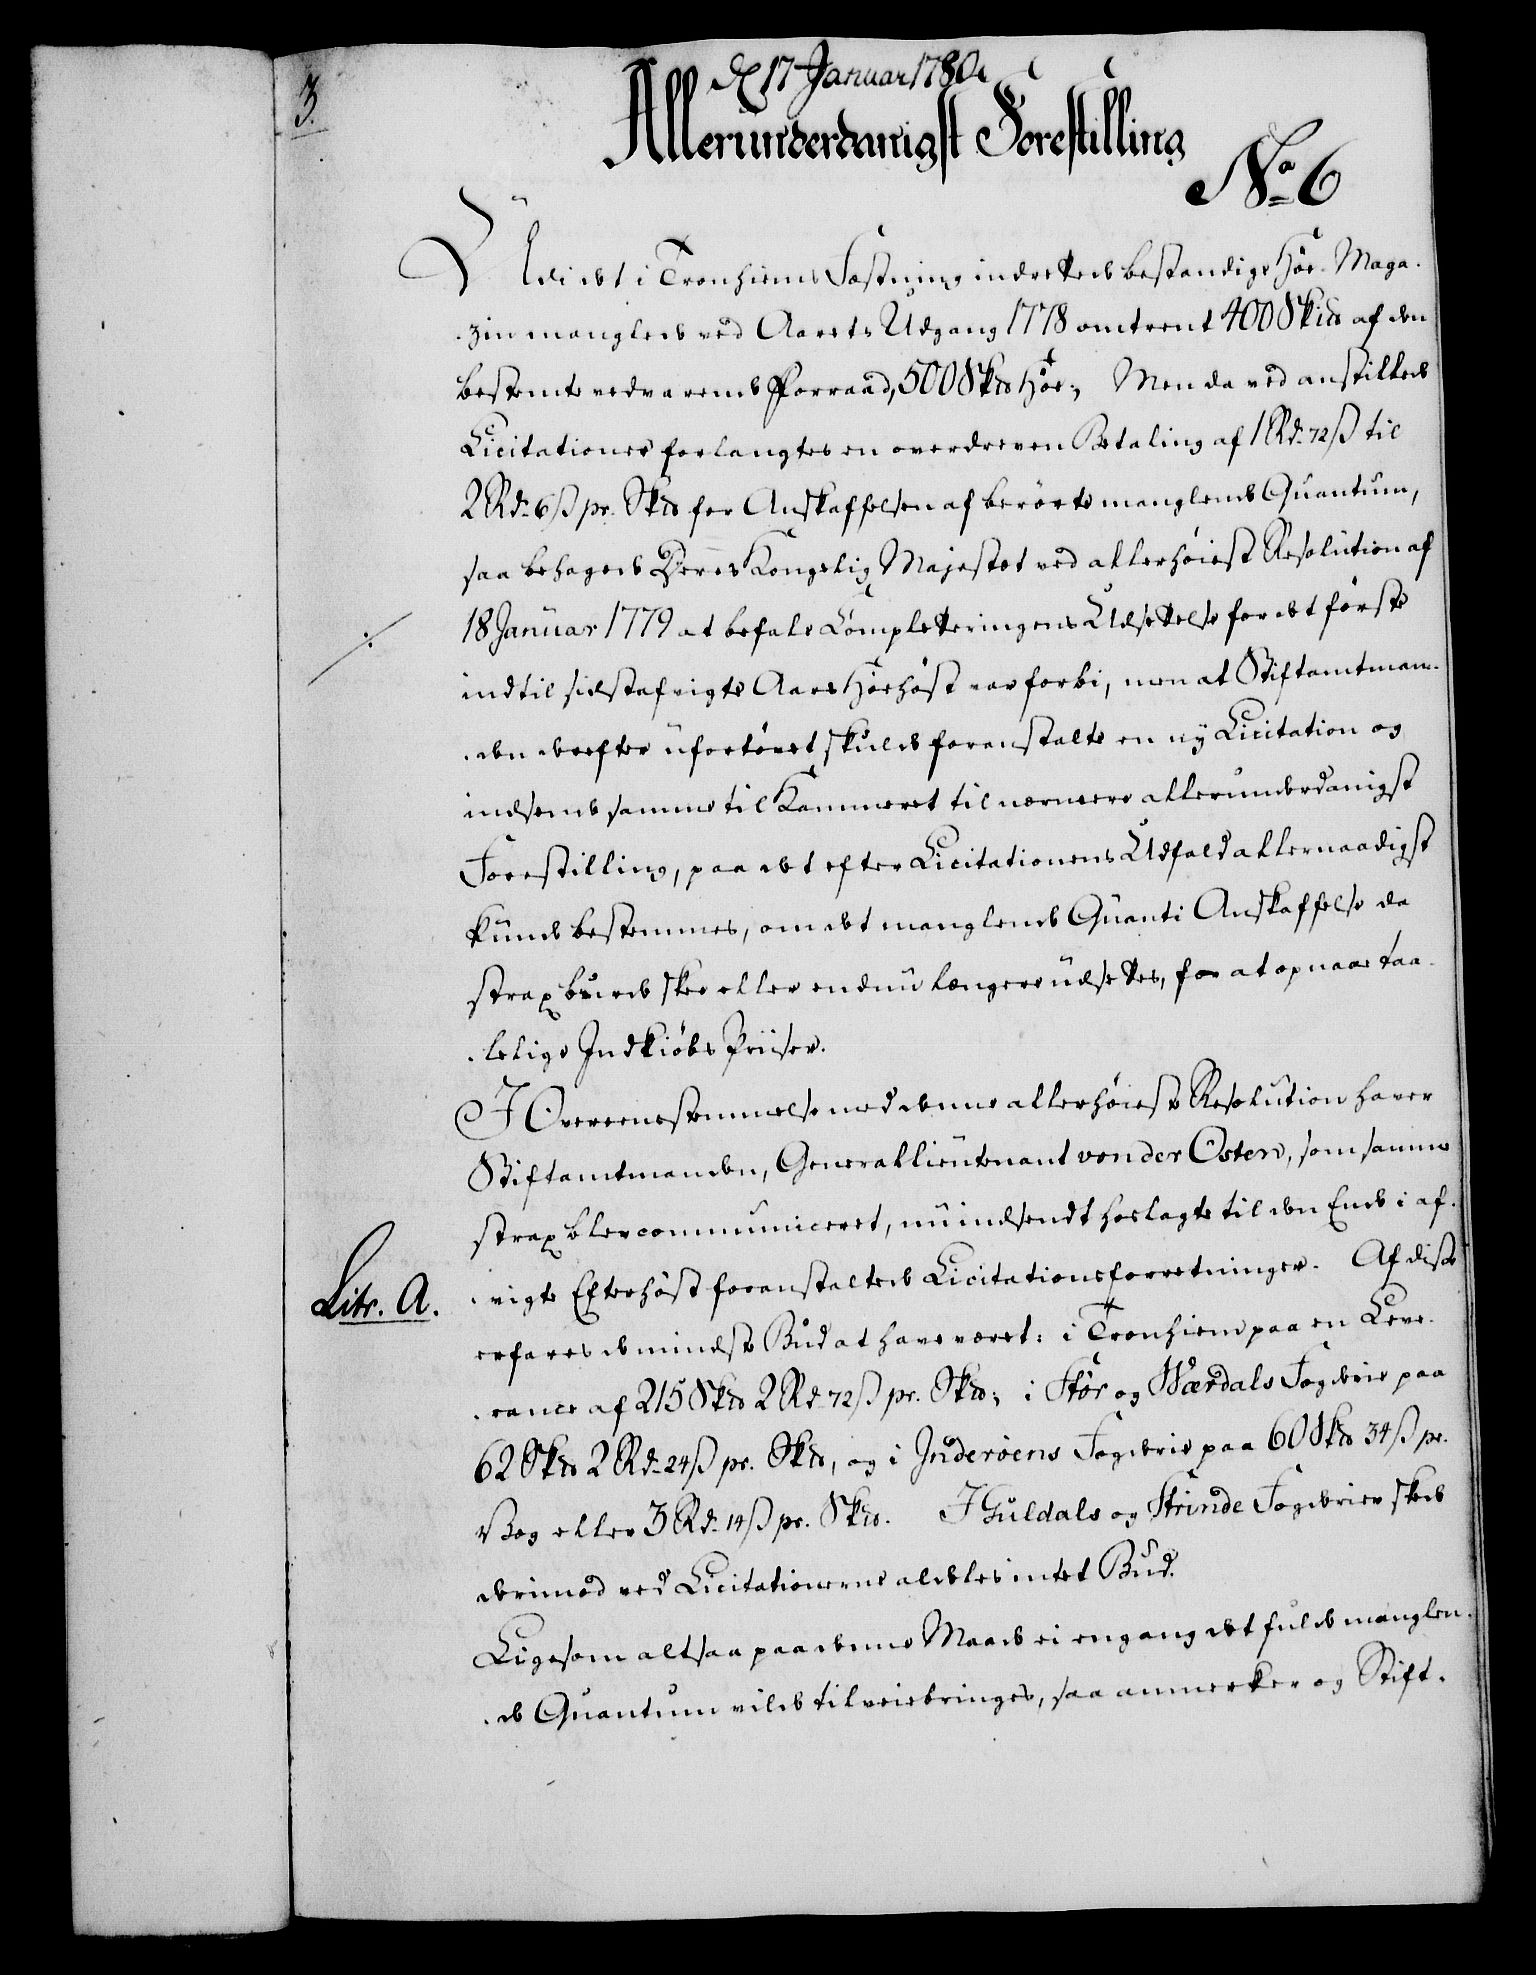 3.
d 17 Januar 1780.
Allerunderdanigst Forestilling
No 6
Udi det i Tronhiems Fæstning indrettede bestandige Höe-Maga-
zin manglede ved Aarets Udgang 1778 omtrent 400 Sk℔ af den
bestemte vedvarende Forraad, 500 Sk℔ Höe; Men da ved anstillede
Licitationer forlangtes en overdreven Betaling af 1 Rd. 72 ß til
2 Rd. 6 ß pr. Sk℔ for Anskaffelsen af berörte manglende Quantum,
saa behagede Deres Kongelig Majestet ved allerhöiest Resolution af
18 Januar 1779 at befale Completteringens Udsettelse for det förste
indtil sidstafvigte Aars Höehöst var forbi, men at Stiftamtman-
den derefter ufortövet skulde foranstalte en ny Licitation og
indsende samme til Kammeret til nærmere allerunderdanigst
Forestilling, paa det efter Licitationens Udfald allernaadigst
kunde bestemmes, om det manglende Quanti Anskaffelse da
strax burde skee eller endnu længere udsettes, for at opnaae taa-
lelige Indkiöbs Priiser.
I Overeenstemmelse med denne allerhöieste Resolution haver
Stiftamtmanden, Generallieutenant von der Osten, som samme
strax blev communiceret, nu indsendt hoslagte til den Ende i af-
vigte Efterhöst foranstaltede Licitationsforretninger. Af disse
Litr. A.
erfares de mindste Bud at have været: i Tronhiem paa en Leve-
rance af 215 Sk℔ 2 Rd. 72 ß pr. Sk℔; i Stör og Værdals Fogderie paa
62 Sk℔ 2 Rd. 24 ß pr. Sk℔, og i Inderöens Fogderie paa 60 Sk℔ 34 ß pr.
Vog eller 3 Rd. 14 ß pr. Sk℔. I Guldals og Strinde Fogderier skede
derimod ved Licitationerne aldeles intet Bud.
Ligesom altsaa paa denne Maade ei engang det fulde manglen-
de Quantum vilde tilveiebringes, saa anmerker og Stift-